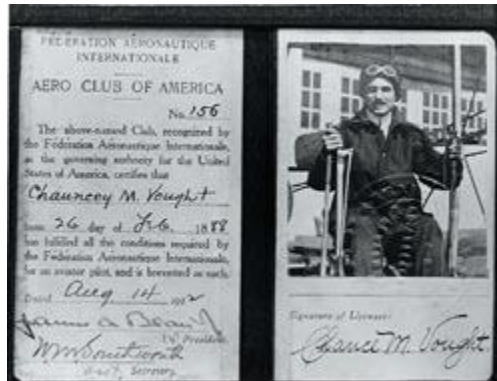 FÉDÉRATION AÉRONAUTIQUE
INTERNATIONALE
AERO CLUB OF AMERICA
No. 156
The above-named Club, recognized by
the Fédération Aéronautique Internationale,
as the governing authority for the United
States of America, certifies that
Chauncey M. Vought
born 26 day of Feb. 1888
has fulfilled all the conditions required by
the Fédération Aéronautique Internationale,
for an aviator pilot, and is brevetted as such.
Dated Aug 14 1912
James A Blair Jr
President.
Wm Southworth
Secretary
Signature of Licensee
Chance M. Vought